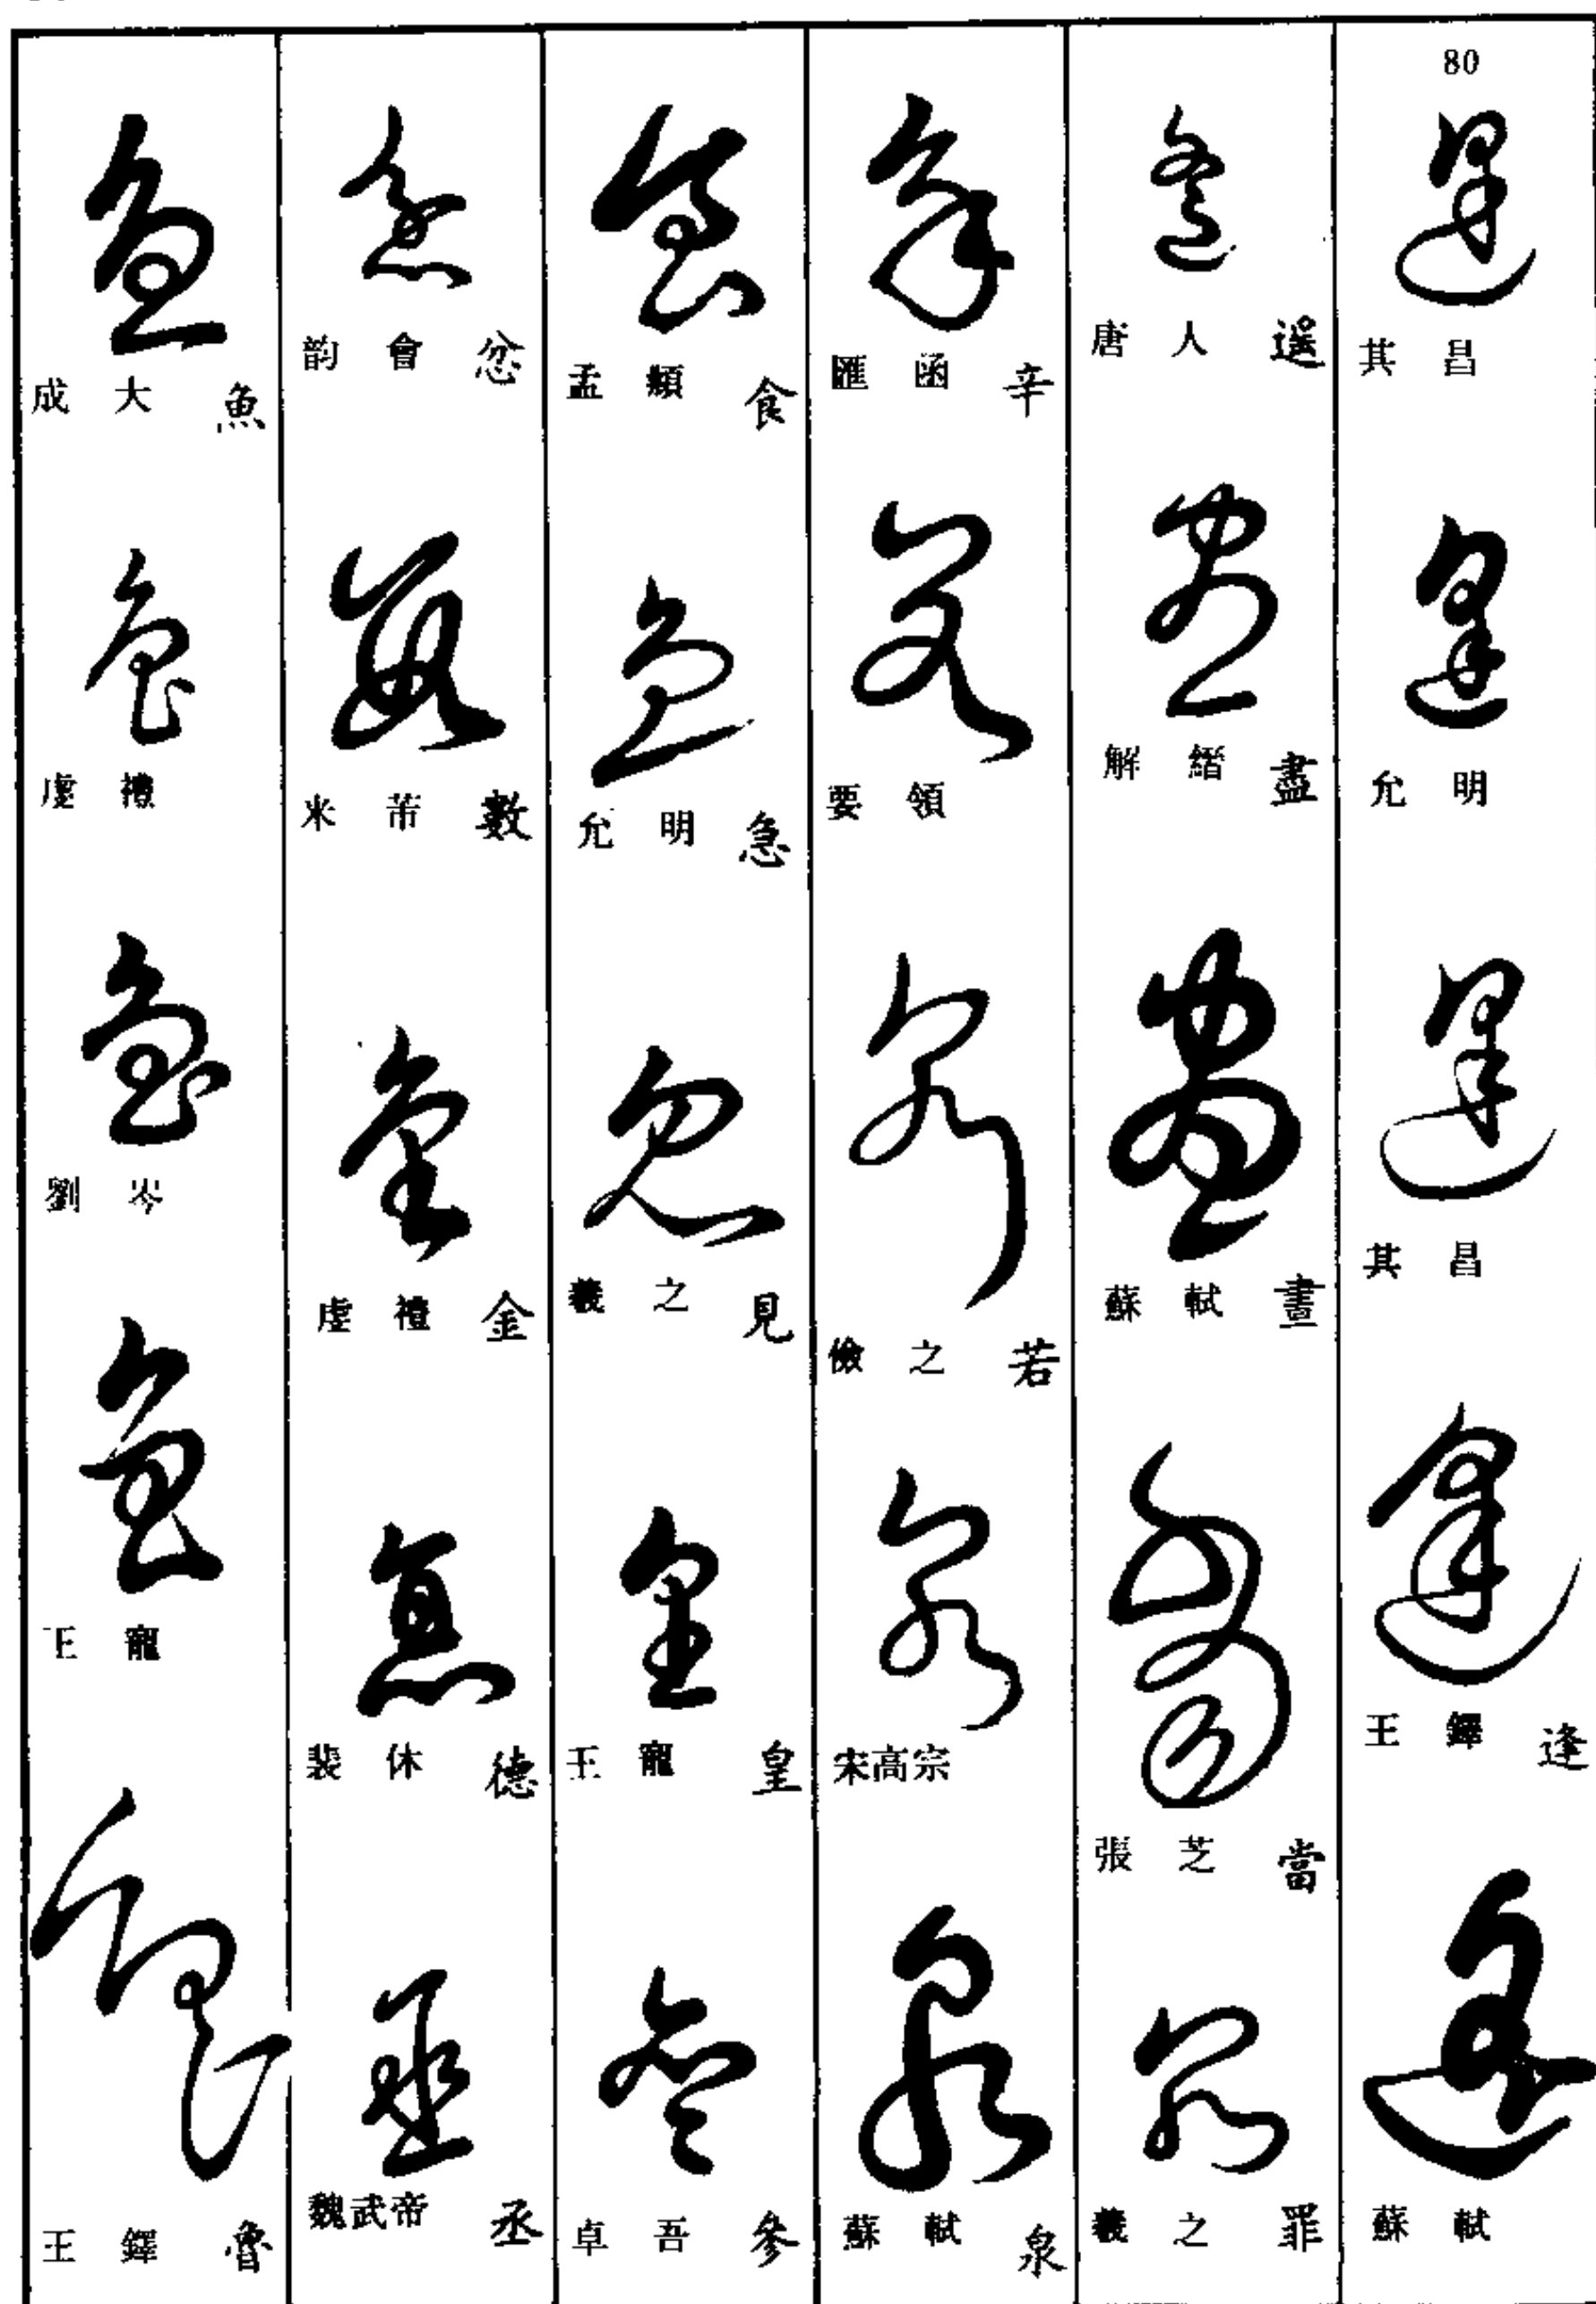 80
其昌
允明
其昌
王鐸 逢
蘇軾
唐人 遥
解縉 盡
蘇軾 晝
張芝 當
羲之 罪
匯函 辛
要領
儉之 若
宋高宗
蘇軾 泉
孟頫 食
允明 急
羲之 見
王寵 皇
卓吾 參
韵會 忿
米芾 數
虔禮 金
裴休 德
魏武帝 丞
成大 魚
虔禮
劉岑
王寵
王鐸 魯